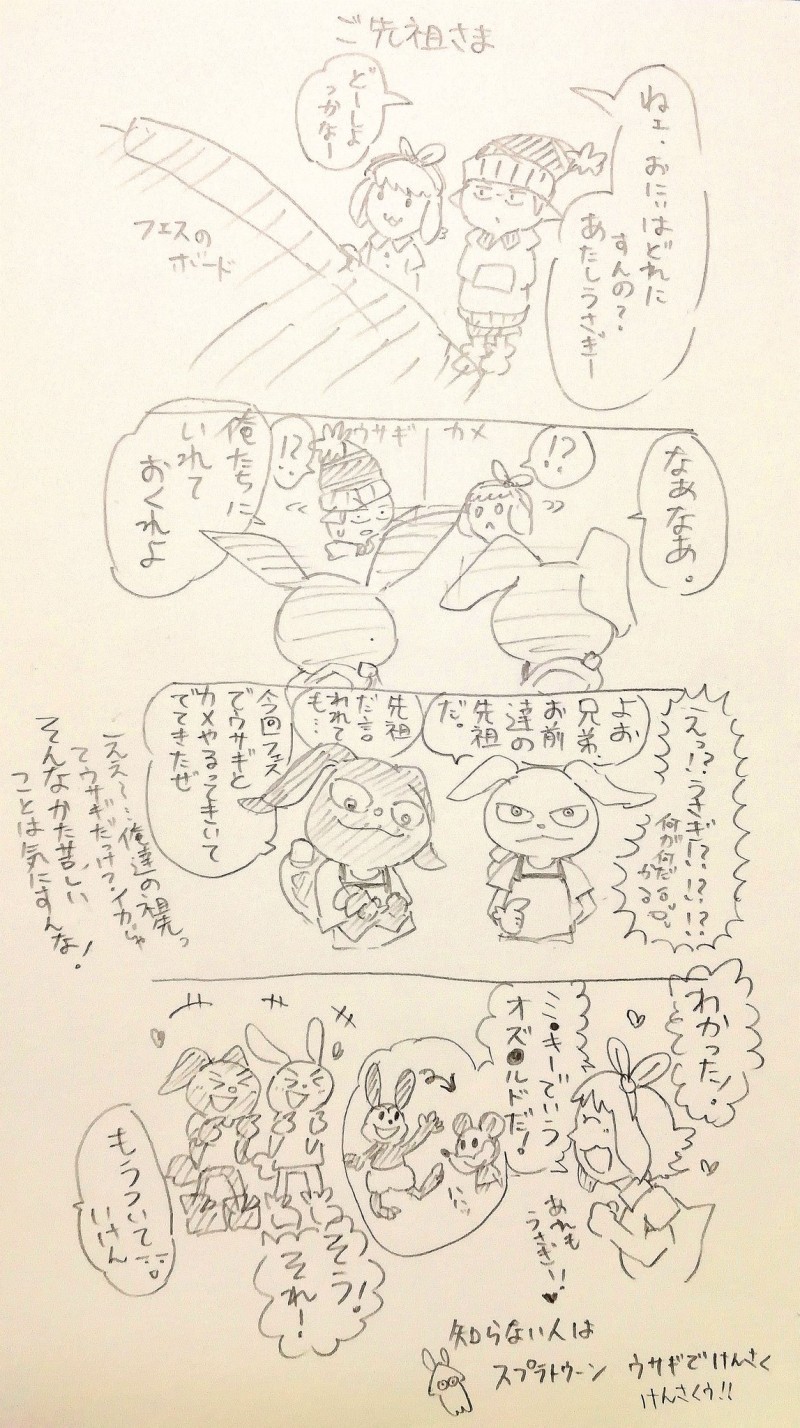 ご先祖さま
ねェ、おにいはどれに
すんの?
あたしうさぎー
どーしよ
っかなー
フェスの
ボード
なあなあ。
!?
カメ
ウサギ
!?
俺たちに
いれて
おくれよ
えっ!?うさぎ!?!?!?
何が何だる
かる
よお
兄弟、
お前
達の
先祖
だ。
先祖
だ言
われて
も…
今回フェス
でウサギと
カメやるってきいて
でてきたぜ
ええ〜…俺達の祖先っ
てウサギだっけ?イカじゃ
そんなかた苦しい
ことは気にすんな!
わかった!
ミ●キーでいう
オズ●ルドだ!
あれも
うさぎ!!
そう!
それ!
もうついて
いけん
知らない人は
スプラトゥーン ウサギでけんさく
けんさくぅ!!